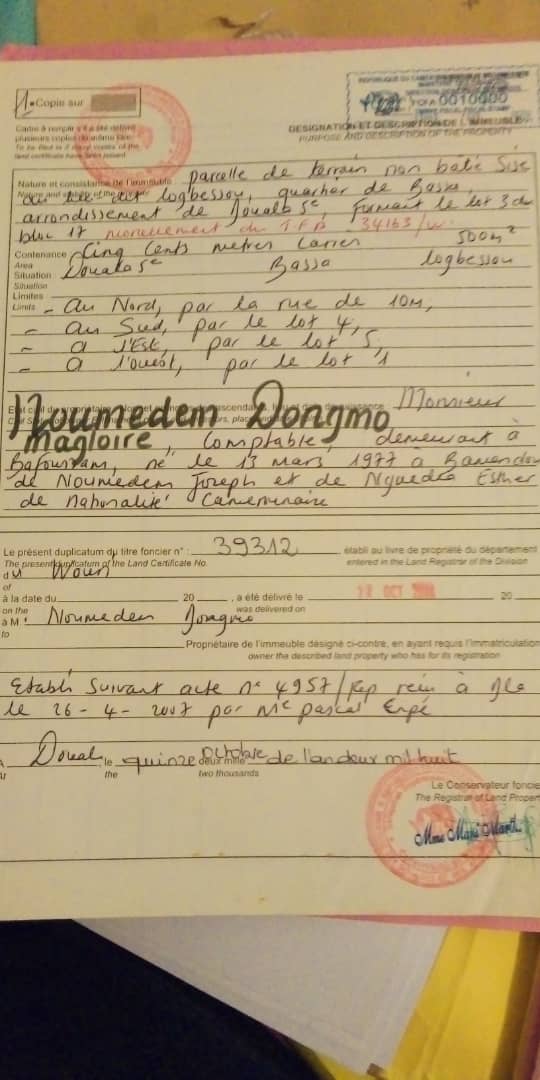 1 Copie sur
Cadre à remplir s'il a été délivré
plusieurs copies du même titre.
To be filed in if many copies of the
land certificate have been issued
REPUBLIQUE DU CAMEROUN
0010000
DESIGNATION ET DESCRIPTION DE L'IMMEUBLE
PURPOSE AND DESCRIPTION OF THE PROPERTY
Nature et consistance de l'immeuble parcelle de terrain non batie Sise
au lieu dit logbessou, quartier de Bassa,
arrondissement de Douala 5e, formant le lot 3 du
bloc 17 morcellement du T.F.P 34163/w.
Contenance Cinq Cents metres Carres 500m²
Area
Situation Douala 5e Bassa logbessou
Situation
Limites
Limits - Au Nord, par la rue de 10m,
- Au Sud, par le lot 4,
- A l'Est, par le lot 5,
- A l'ouest, par le lot 1
Noumedem Dongmo Monsieur
magloire, Comptable, demeurant à
Bafoussam, né le 13 mars 1977 à Bamendou
de Noumedem Joseph et de Esther
de nationalité Camerounaire
Le présent duplicatum du titre foncier n° : 39312 établi au livre de propriété du département
The present duplicatum of the Land Certificate No. entered in the Land Registrar of the Division
du Wouri
of
à la date du 20 , a été délivré le OCT 20
on the was delivered on
à M Noumedem Dongmo
to
Propriétaire de l'immeuble désigné ci-contre, en ayant requis l'immatriculation
owner the described land property who has for its registration
Etabli Suivant acte n° 4957/Rep
le 26-4-2007 par Me pascal
A Doual , le quinze octobre deux mille de l'an deux mil huit
At the two thousands
Le Conservateur foncie
The Registrar of Land Proper
Mme